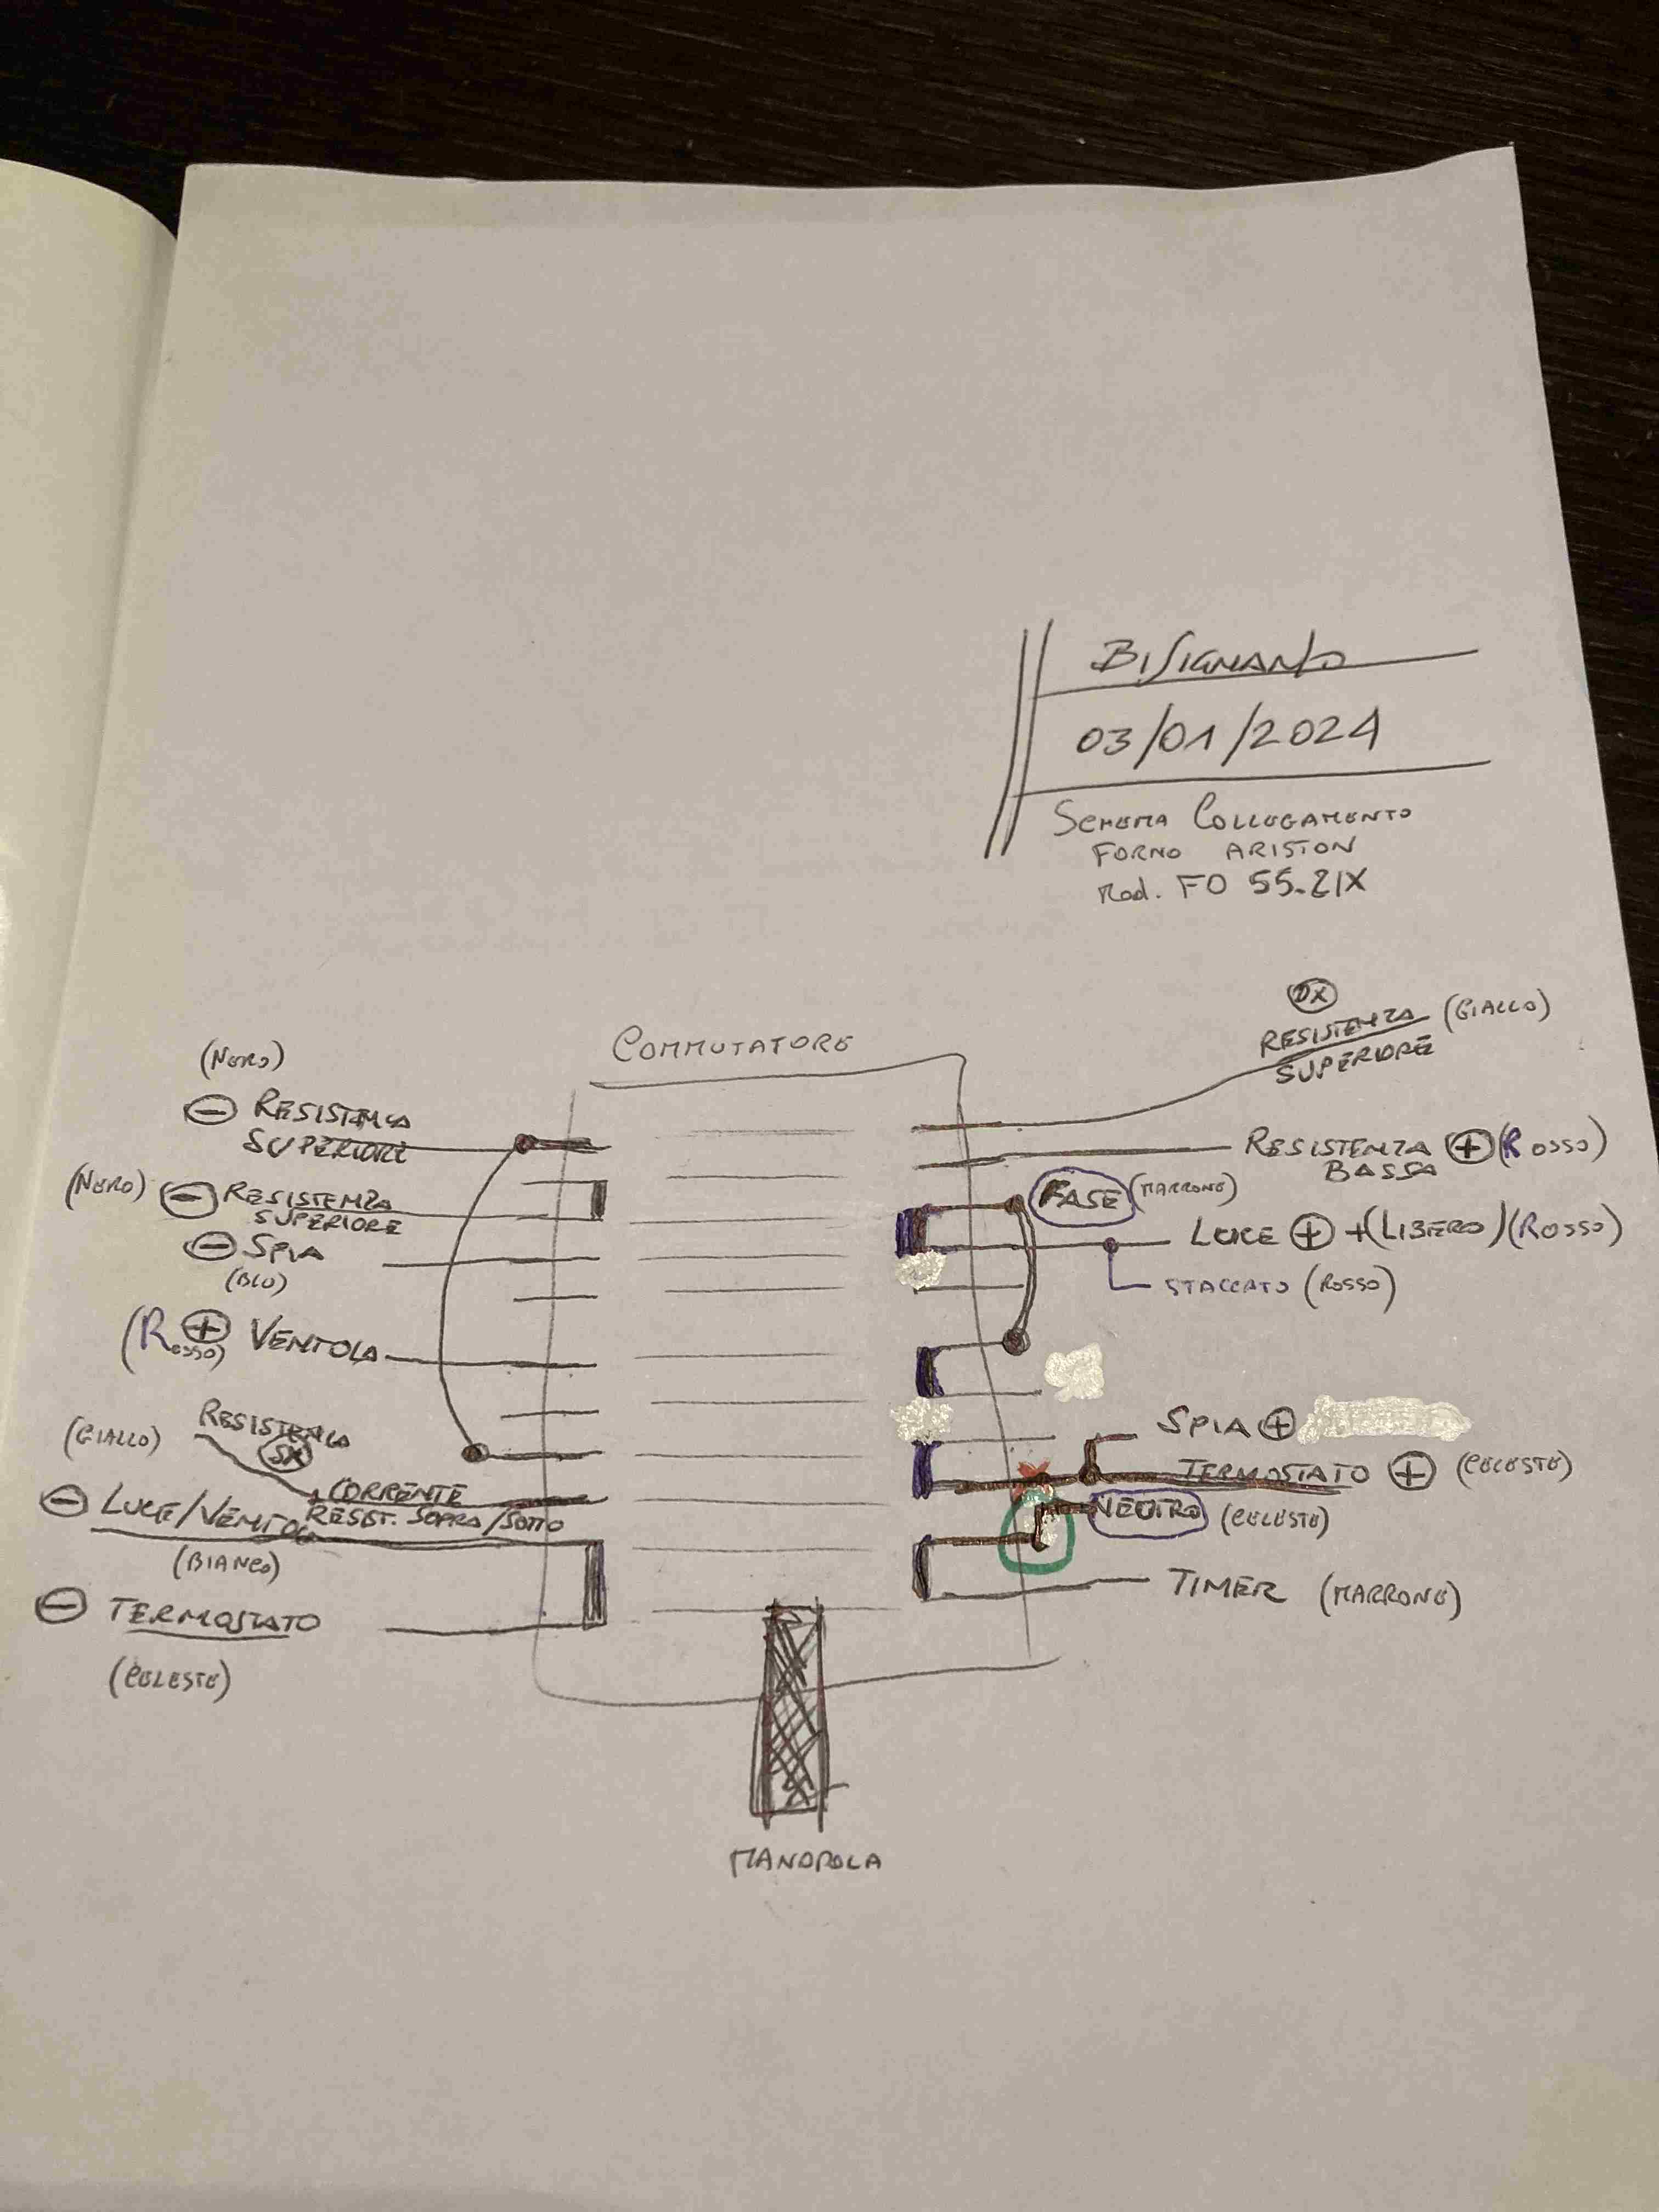 BISIGNANO
03/01/2024
SCHEMA COLLEGAMENTO
FORNO ARISTON
Mod. FO 55.2IX
COMMUTATORE
(NERO)
⊖ RESISTENZA
SUPERIORE
(NERO) ⊖ RESISTENZA
SUPERIORE
⊖ SPIA
(BLU)
(ROSSO) ⊕ VENTOLA
(GIALLO) RESISTENZA
SX
CORRENTE
RESIST. SOPRA/SOTTO
⊖ LUCE/VENTOLA
(BIANCO)
⊖ TERMOSTATO
(CELESTE)
DX
RESISTENZA (GIALLO)
SUPERIORE
RESISTENZA ⊕ (ROSSO)
BASSA
FASE (MARRONE)
LUCE ⊕ +(LIBERO)(ROSSO)
STACCATO (ROSSO)
SPIA ⊕
TERMOSTATO ⊕ (CELESTE)
NEUTRO (CELESTE)
TIMER (MARRONE)
MANOPOLA